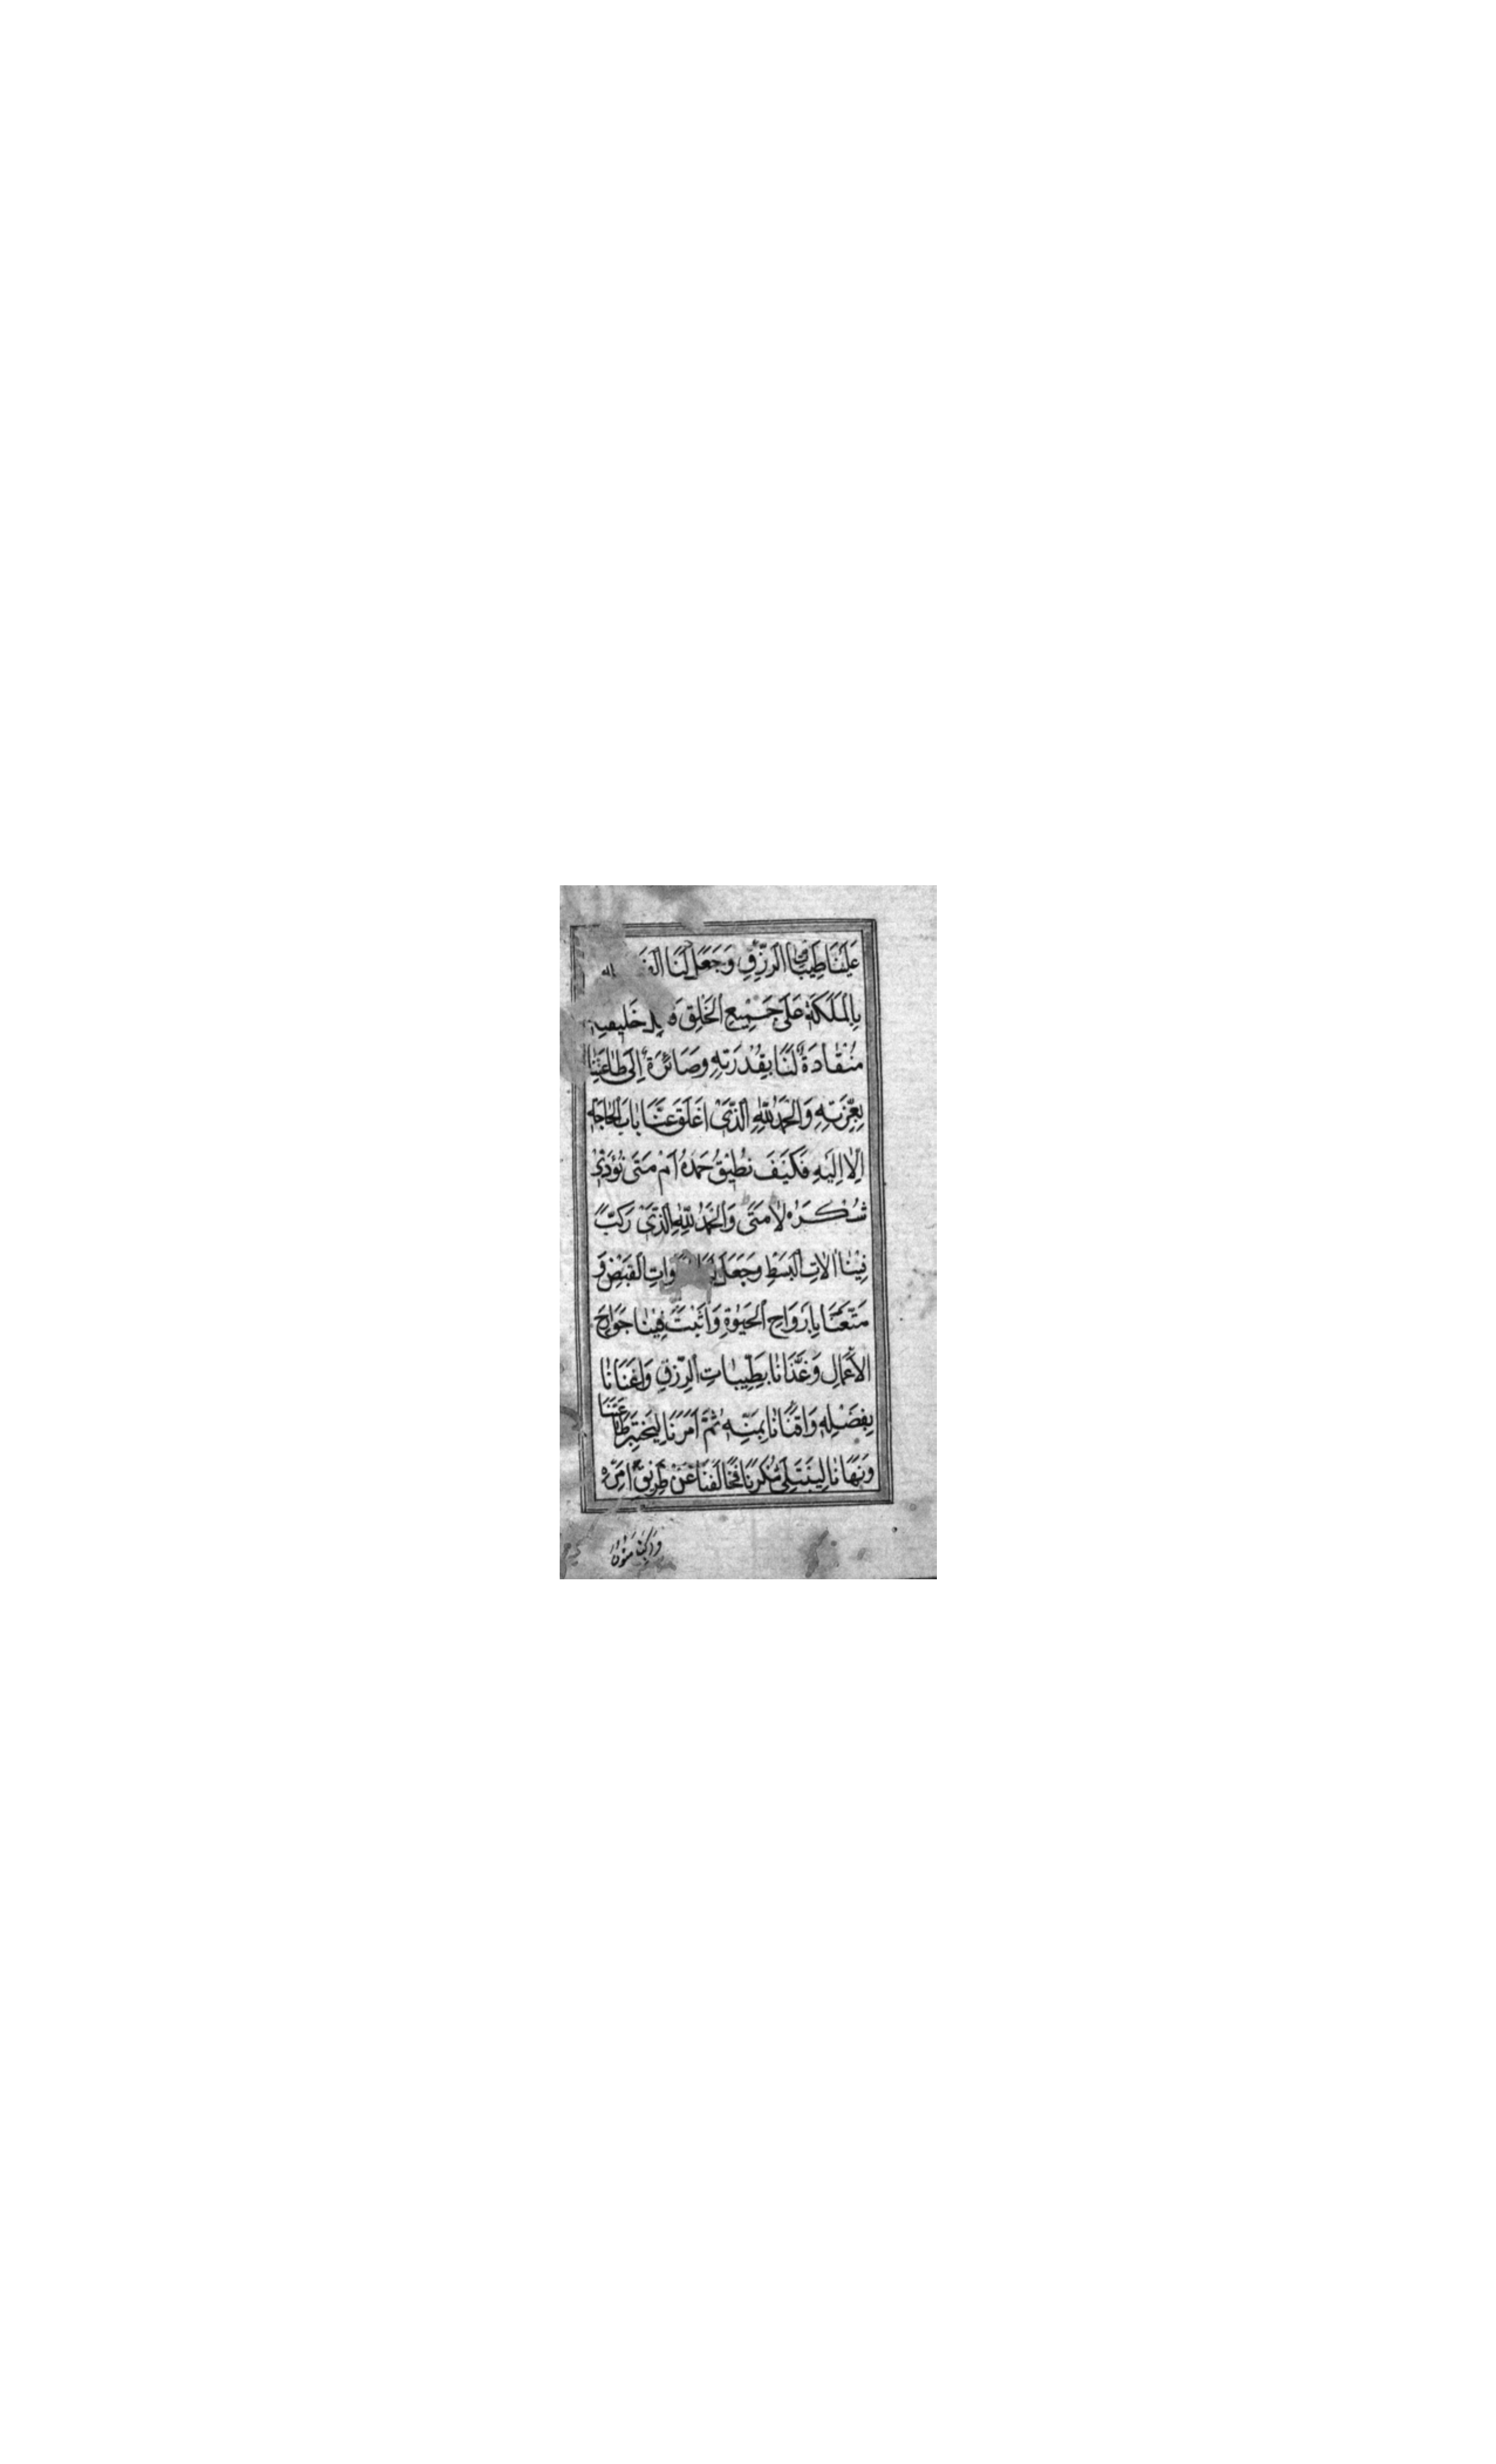 عَلَيْنَا طَيِّبَاتِ الرِّزْقِ وَجَعَلَ لَنَا
بِالْمَلَكَةِ عَلَى جَمِيعِ الْخَلْقِ خَلِيقَتِهِ
مُنْقَادَةٌ لَنَا بِقُدْرَتِهِ وَصَائِرَةٌ إِلَى طَاعَتِنَا
بِعِزَّتِهِ وَالْحَمْدُ لِلَّهِ الَّذِي اَغْلَقَ عَنَّا بَابَ الْحَاجَةِ
اِلَّا اِلَيْهِ فَكَيْفَ نُطِيقُ حَمْدَهُ اَمْ مَتَى نُؤَدِّي
شُكْرَهُ لَا مَتَى وَالْحَمْدُ لِلَّهِ الَّذِي رَكَّبَ
فِينَا اٰلَاتِ الْبَسْطِ وَجَعَلَ لَنَا اَدَوَاتِ الْقَبْضِ وَ
مَتَّعَنَا بِاَرْوَاحِ الْحَيٰوةِ وَاَثْبَتَ فِينَا جَوَارِحَ
الْاَعْمَالِ وَغَذَّانَا بِطَيِّبَاتِ الرِّزْقِ وَاَغْنَانَا
بِفَضْلِهِ وَاَقْنَانَا بِمَنِّهِ ثُمَّ اَمَرَنَا لِيَخْتَبِرَ طَاعَتَنَا
وَنَهَانَا لِيَبْتَلِيَ شُكْرَنَا فَخَالَفْنَا عَنْ طَرِيقِ اَمْرِهِ
وَرَكِبْنَا مُتُونَ